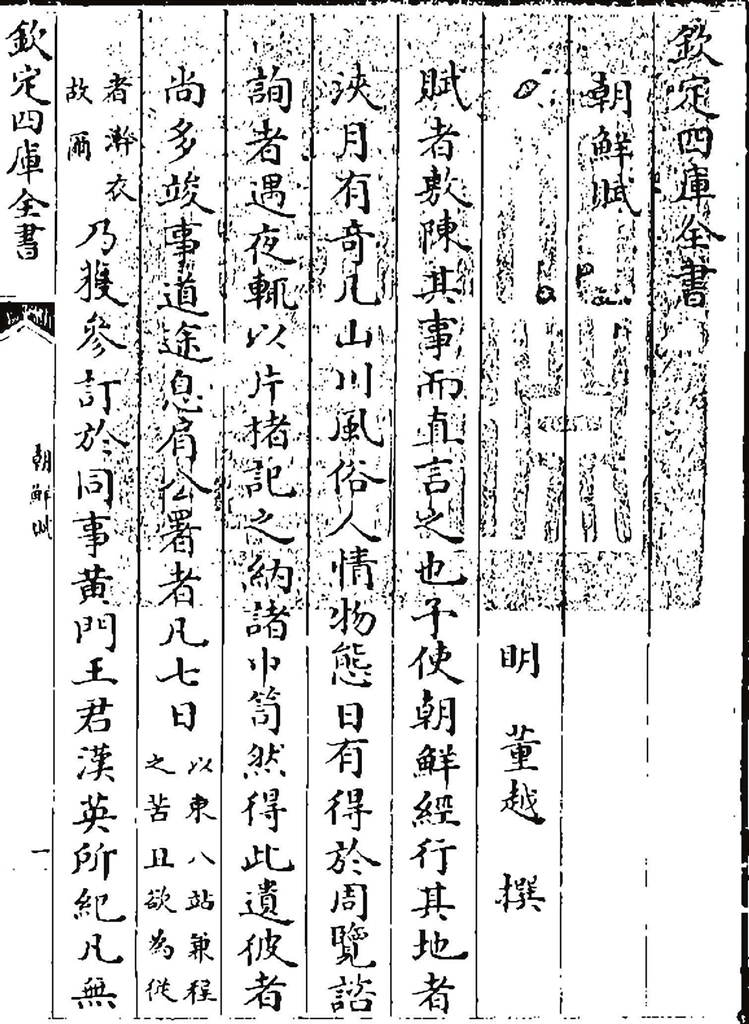 欽定四庫全書
朝鮮賦
明 董越 撰
賦者敷陳其事而直言之也予使朝鮮經行其地者
浹月有奇凡山川風俗人情物態日有得於周覽諮
詢者遇夜輒以片楮記之納諸巾笥然得此遺彼者
尚多竣事道途息肩公署者凡七日以東八站兼程之苦且欲為從
者澣衣故爾乃獲參訂於同事黃門王君漢英所紀凡無
欽定四庫全書
朝鮮賦
一